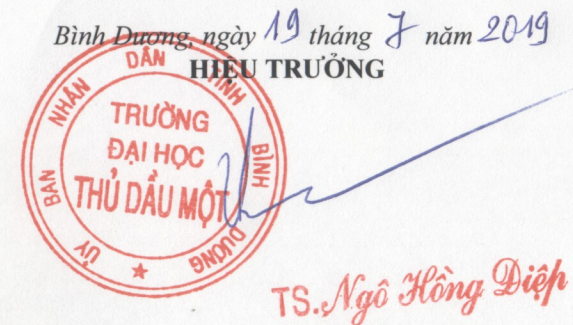 Bình Dương, ngày 19 tháng 7 năm 2019
HIỆU TRƯỞNG
ỦY BAN NHÂN DÂN TỈNH BÌNH DƯƠNG
TRƯỜNG
ĐẠI HỌC
THỦ DẦU MỘT
TS. Ngô Hồng Điệp